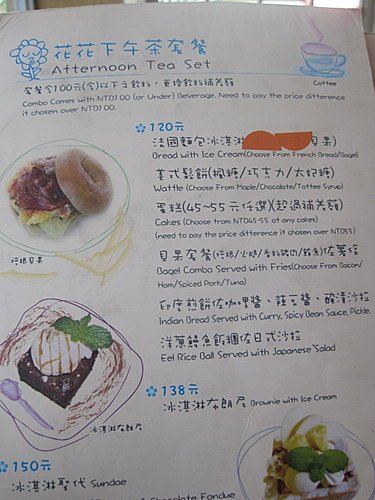 花花下午茶套餐
Afternoon Tea Set
Coffee
套餐含100元(含)以下之飲料，更換飲料補差額
Combo Comes with NTD100 (or Under) Beverage. Need to pay the price difference
it chosen over NTD100.
120元
法國麵包冰淇淋 貝果)
Bread with Ice Cream(Choose From French Bread/Bagel)
美式鬆餅(楓糖/巧克力/太妃糖)
Wattle (Choose From Maple/Chocolate/Tottee Syrup)
蛋糕(45~55元任選)(超過補差額)
Cakes (Choose from NTD45-55 ot any cakes)
(need to pay the price difference it chosen over NTD55)
貝果套餐(培根/火腿/香料豬肉/鮪魚)佐薯條
Bagel Combo Served with Fries(Choose From Bacon/
Ham/Spiced Pork/Tuna)
培根貝果
印度煎餅佐咖哩醬、辣豆醬、酸漬沙拉
Indian Bread Served with Curry, Spicy Bean Sauce, Pickle.
洋蔥鰻魚飯糰佐日式沙拉
Eel Rice Ball Served with Japanese Salad
138元
冰淇淋布朗尼 Brownie with Ice Cream
冰淇淋布朗尼
150元
冰淇淋聖代 Sundae
Chocolate Fondue